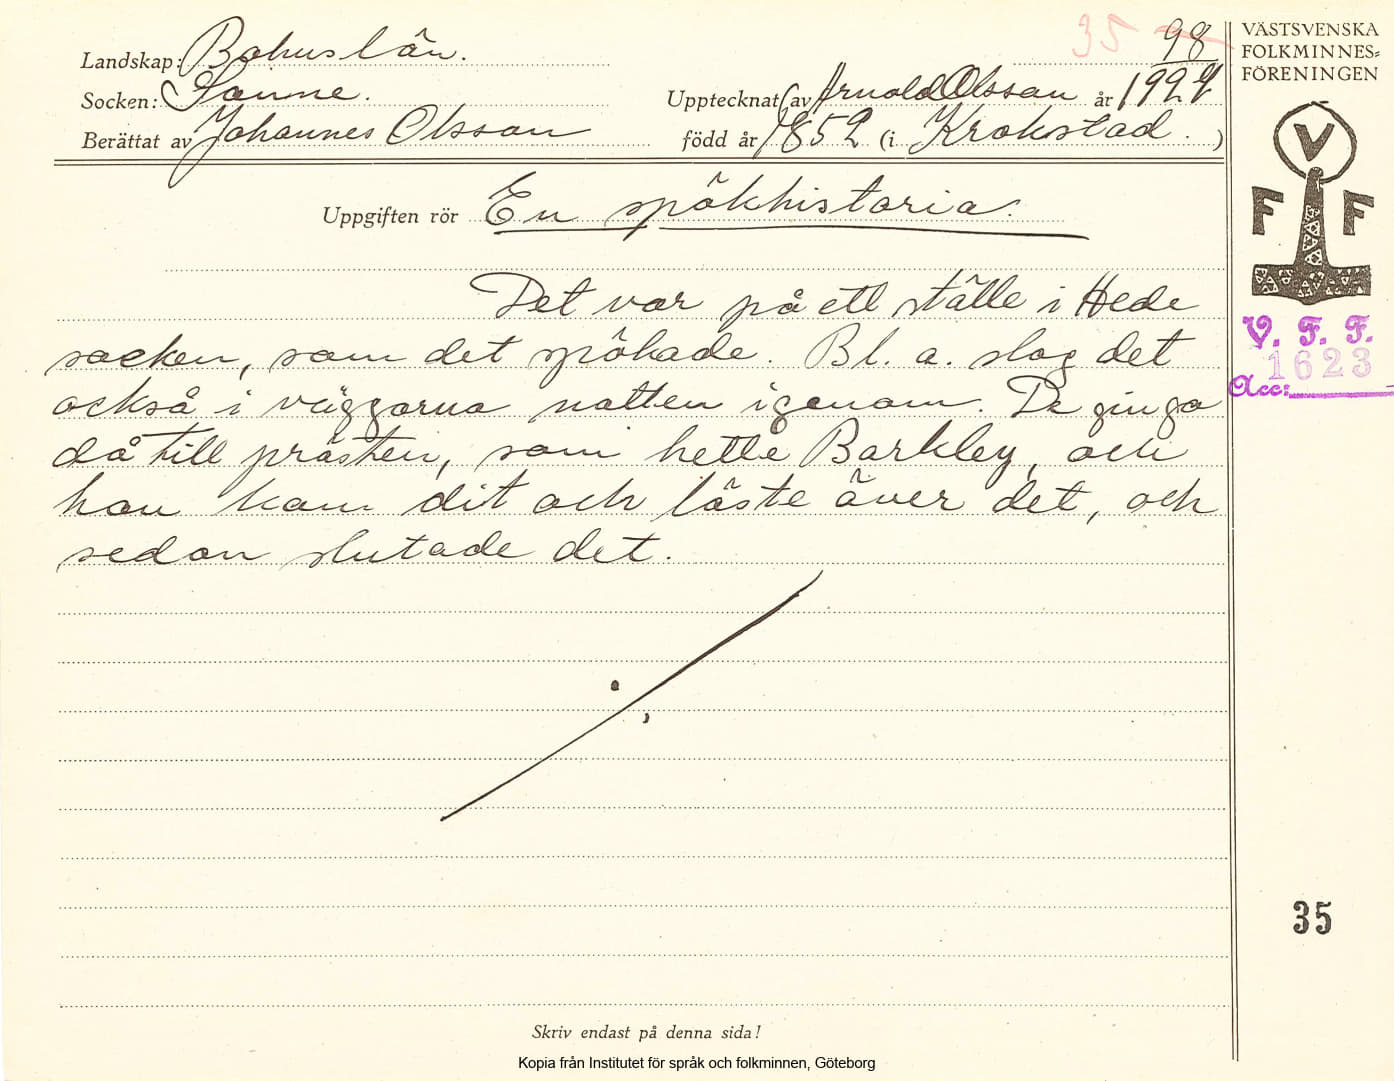 35 98
Landskap: Bohuslän.
Socken: Sanne.
Upptecknat av Arnold Olsson år 1927
Berättat av Johannes Olsson född år 1852 (i Krokstad.)
Uppgiften rör En spökhistoria.
Det var på ett ställe i Hede
socken, som det spökade. Bl. a. slog det
också i väggarna natten igenom. De gingo
då till prästen, som hette Barkley, och
han kom dit och läste över det, och
sedan slutade det.
VÄSTSVENSKA
FOLKMINNES=
FÖRENINGEN
V
F F
V. F. F.
1623
Acc:
35
Skriv endast på denna sida!
Kopia från Institutet för språk och folkminnen, Göteborg